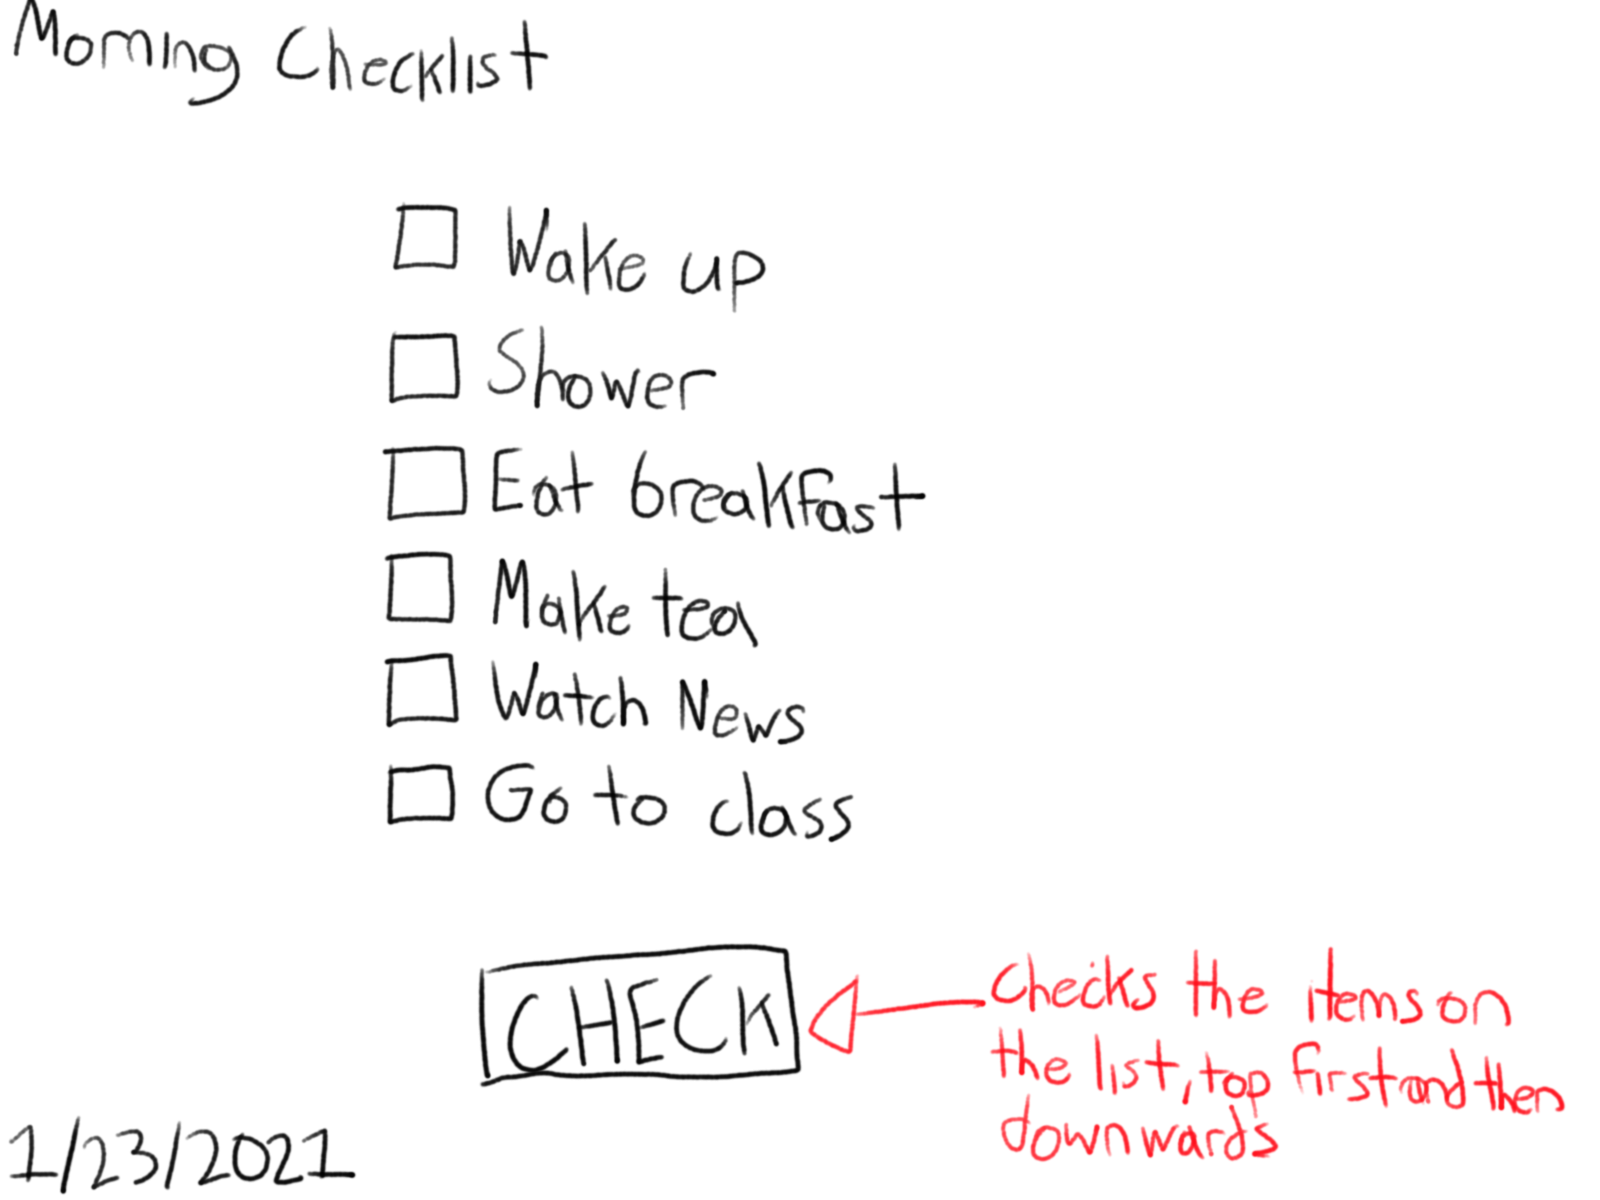 Morning Checklist
Wake up
Shower
Eat breakfast
Make tea
Watch News
Go to class
CHECK
Checks the items on
the list, top first and then
downwards
1/23/2021